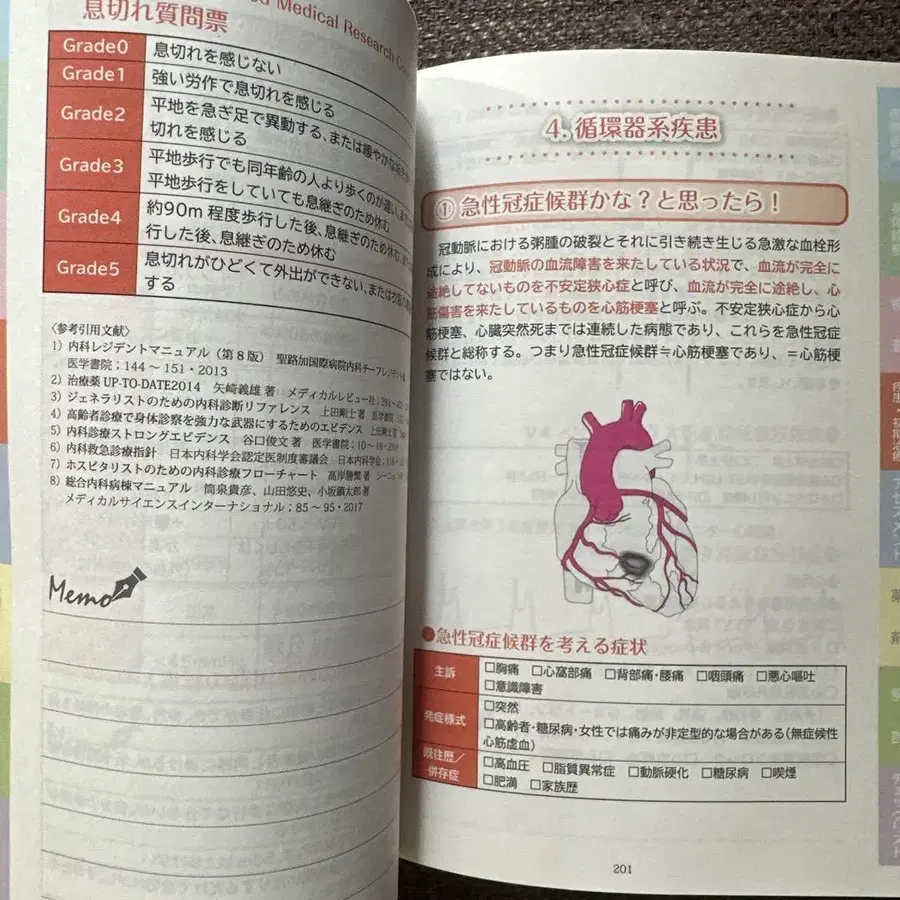 Medical Research
息切れ質問票
Grade0 息切れを感じない
Grade1 強い労作で息切れを感じる
Grade2 平地を急ぎ足で異動する、または緩やかな
切れを感じる
Grade3 平地歩行でも同年齢の人より歩くのが遅い、
平地歩行をしていても息継ぎのため休む
Grade4 約90m 程度歩行した後、息継ぎのため休む、
行した後、息継ぎのため休む
Grade5 息切れがひどくて外出ができない、または
する
〈参考引用文献〉
1）内科レジデントマニュアル（第8版） 聖路加国際病院内科チーフレジデント
医学書院；144～151・2013
2）治療薬 UP-TO-DATE2014 矢崎義雄 著 メディカルレビュー社；291～
3）ジェネラリストのための内科診断リファレンス 上田剛士 著 医学書院
4）高齢者診療で身体診察を強力な武器にするためのエビデンス 上田剛士 著
5）内科診療ストロングエビデンス 谷口俊文 著 医学書院；10～18・
6）内科救急診療指針 日本内科学会認定医制度審議会 日本内科学会；
7）ホスピタリストのための内科診療フローチャート 髙岸勝繁 著
8）総合内科病棟マニュアル 筒泉貴彦、山田悠史、小坂鎮太郎 著
メディカルサイエンスインターナショナル；85～95・2017
Memo
4. 循環器系疾患
① 急性冠症候群かな？と思ったら！
冠動脈における粥腫の破裂とそれに引き続き生じる急激な血栓形
成により、冠動脈の血流障害を来たしている状況で、血流が完全に
途絶してないものを不安定狭心症と呼び、血流が完全に途絶し、心
筋傷害を来たしているものを心筋梗塞と呼ぶ。不安定狭心症から心
筋梗塞、心臓突然死までは連続した病態であり、これらを急性冠症
候群と総称する。つまり急性冠症候群≒心筋梗塞であり、＝心筋梗
塞ではない。
●急性冠症候群を考える症状
主訴 □胸痛 □心窩部痛 □背部痛・腰痛 □咽頭痛 □悪心嘔吐
□意識障害
発症様式 □突然
□高齢者・糖尿病・女性では痛みが非定型的な場合がある（無症候性
心筋虚血）
既往歴／
併存症 □高血圧 □脂質異常症 □動脈硬化 □糖尿病 □喫煙
□肥満 □家族歴
201
疾患・初期治療
アセスメント
薬